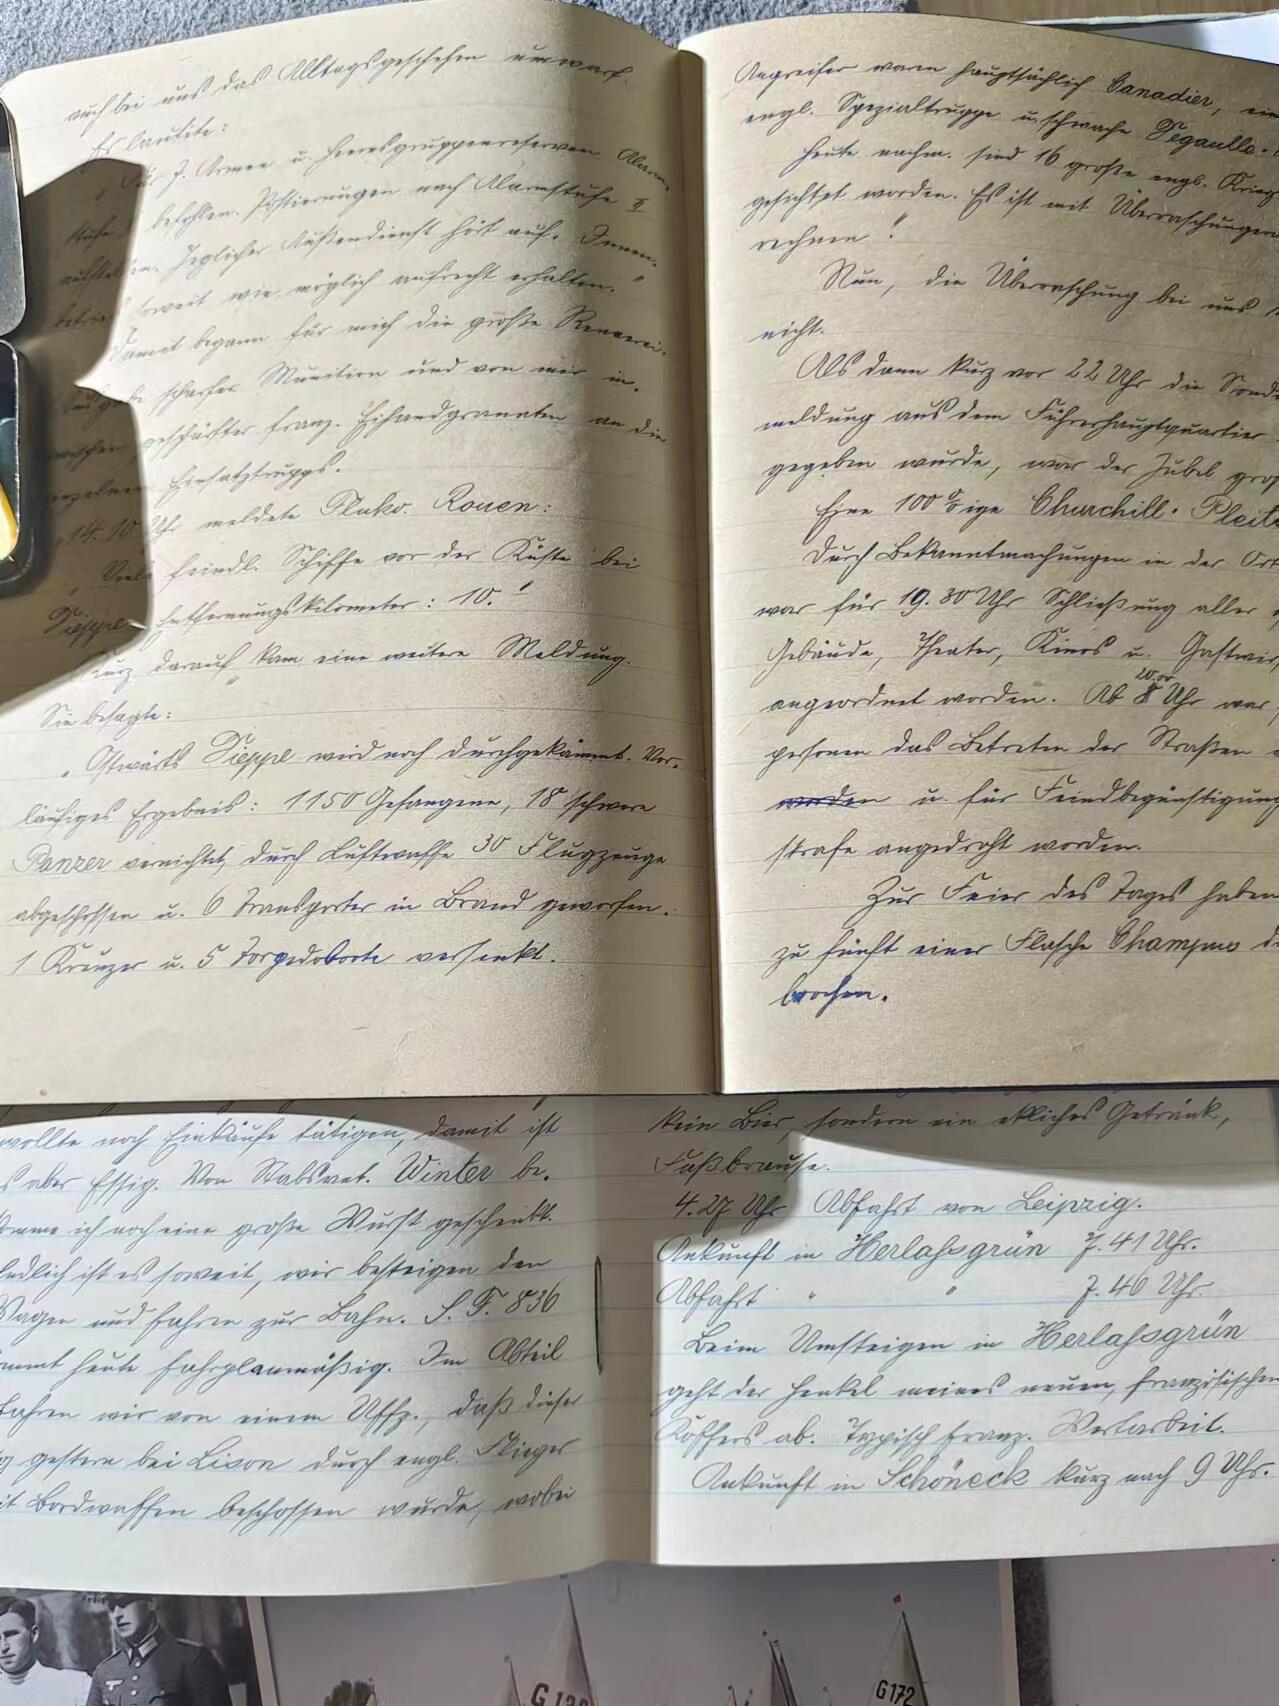 auch bei uns das Alltagsgeschehen umwarf
Es lautete:
7. Armee u. Heeresgruppenreserven Alarm-
befohlen. Postierungen nach Alarmstufe II
aufstellen. Jeglicher Außendienst hört auf. Innen-
soweit wie möglich aufrecht erhalten."
Damit begann für mich die große Rennerei.
scharfer Munition und von mir in-
zwischen geschärfter franz. Eihandgranaten an die
einzelnen Einsatztrupps.
14.10 Uhr meldete Fluko. Rouen:
"Viele feindl. Schiffe vor der Küste bei
Dieppe Entfernungskilometer: 10."
Kurz darauf kam eine weitere Meldung.
Sie besagte:
"Ostwärts Dieppe wird noch durchgekämmt. Vor-
läufiges Ergebnis: 1150 Gefangene, 18 schwere
Panzer vernichtet, durch Luftwaffe 30 Flugzeuge
abgeschossen u. 6 Transporter in Brand geworfen.
1 Kreuzer u. 5 Torpedoboote versenkt.
Angreifer waren hauptsächlich Canadier, ein
engl. Spezialtruppe u. schwache Degaulle-
Heute nachm. sind 16 große engl. Krieg
gesichtet worden. Es ist mit Überraschungen
rechnen!"
Nun, die Überraschung bei uns
nicht.
Als dann kurz vor 22 Uhr die Sonder
meldung aus dem Führerhauptquartier
gegeben wurde, war der Jubel groß
Eine 100%ige Churchill-Pleite
Durch Bekanntmachungen in der Ort
war für 19.30 Uhr Schließung aller
Gebäude, Theater, Kinos u. Gastwir
angeordnet worden. Ab 20.00 Uhr war
personen das Betreten der Straßen
worden u. für Feindbegünstigung
strafe angedroht worden.
Zur Feier des Tages haben
zu fünft einer Flasche Champus
brochen.
wollte noch Einkäufe tätigen, damit ist
s aber Essig. Von Stabsvet. Winter be-
komme ich noch eine große Wurst geschenkt.
Endlich ist es soweit, wir besteigen den
Wagen und fahren zur Bahn. S.F. 836
kommt heute fahrplanmäßig. Im Abteil
erfahren wir von einem Uffz., daß dieser
gestern bei Lison durch engl. Flieger
mit Bordwaffen beschossen wurde, wobei
kein Bier, sondern ein ekliches Getränk,
Faßbrause.
4.27 Uhr Abfahrt von Leipzig.
Ankunft in Herlasgrün 7.41 Uhr.
Abfahrt " " 7.46 Uhr.
Beim Umsteigen in Herlasgrün
geht der Henkel meines neuen, französischen
Koffers ab. Typisch franz. Wertarbeit.
Ankunft in Schöneck kurz nach 9 Uhr.
G 172